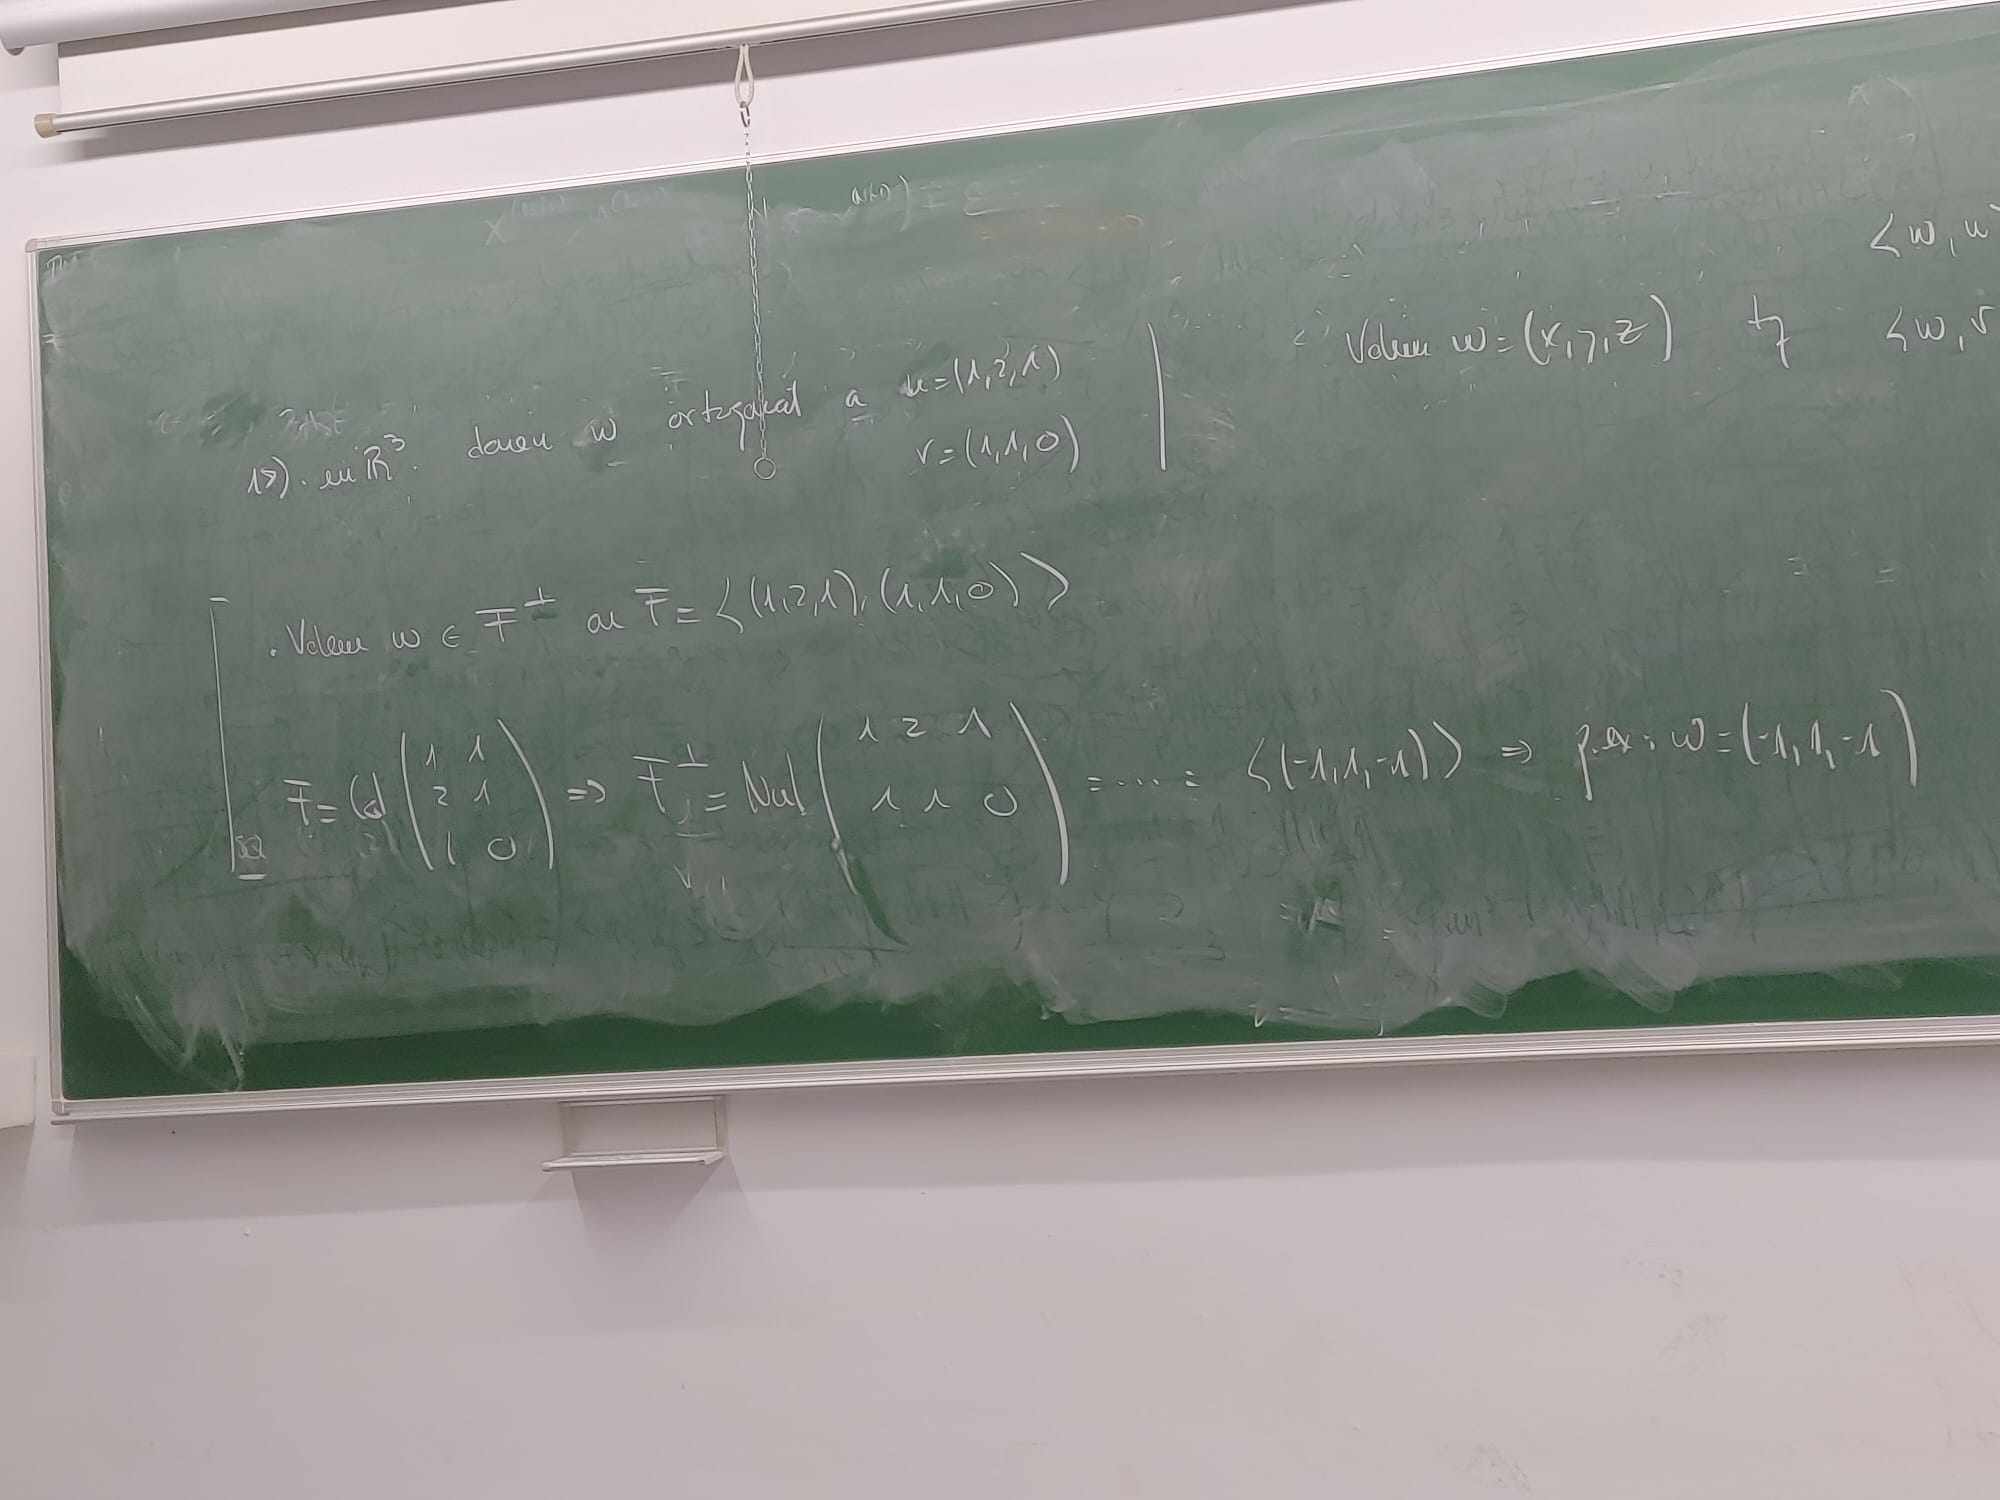 18). en ℝ³. donen w ortogonal a u=(1,2,1)
v=(1,1,0)
Volem w=(x,y,z) tq
<w,u>
<w,v
. Volem w ∈ F^⊥ on F = <(1,2,1),(1,1,0)>
F = Col (1 1
2 1
1 0) => F^⊥ = Nul (1 2 1
1 1 0) = ... = <(-1,1,-1)> => p.ex: w=(-1,1,-1)